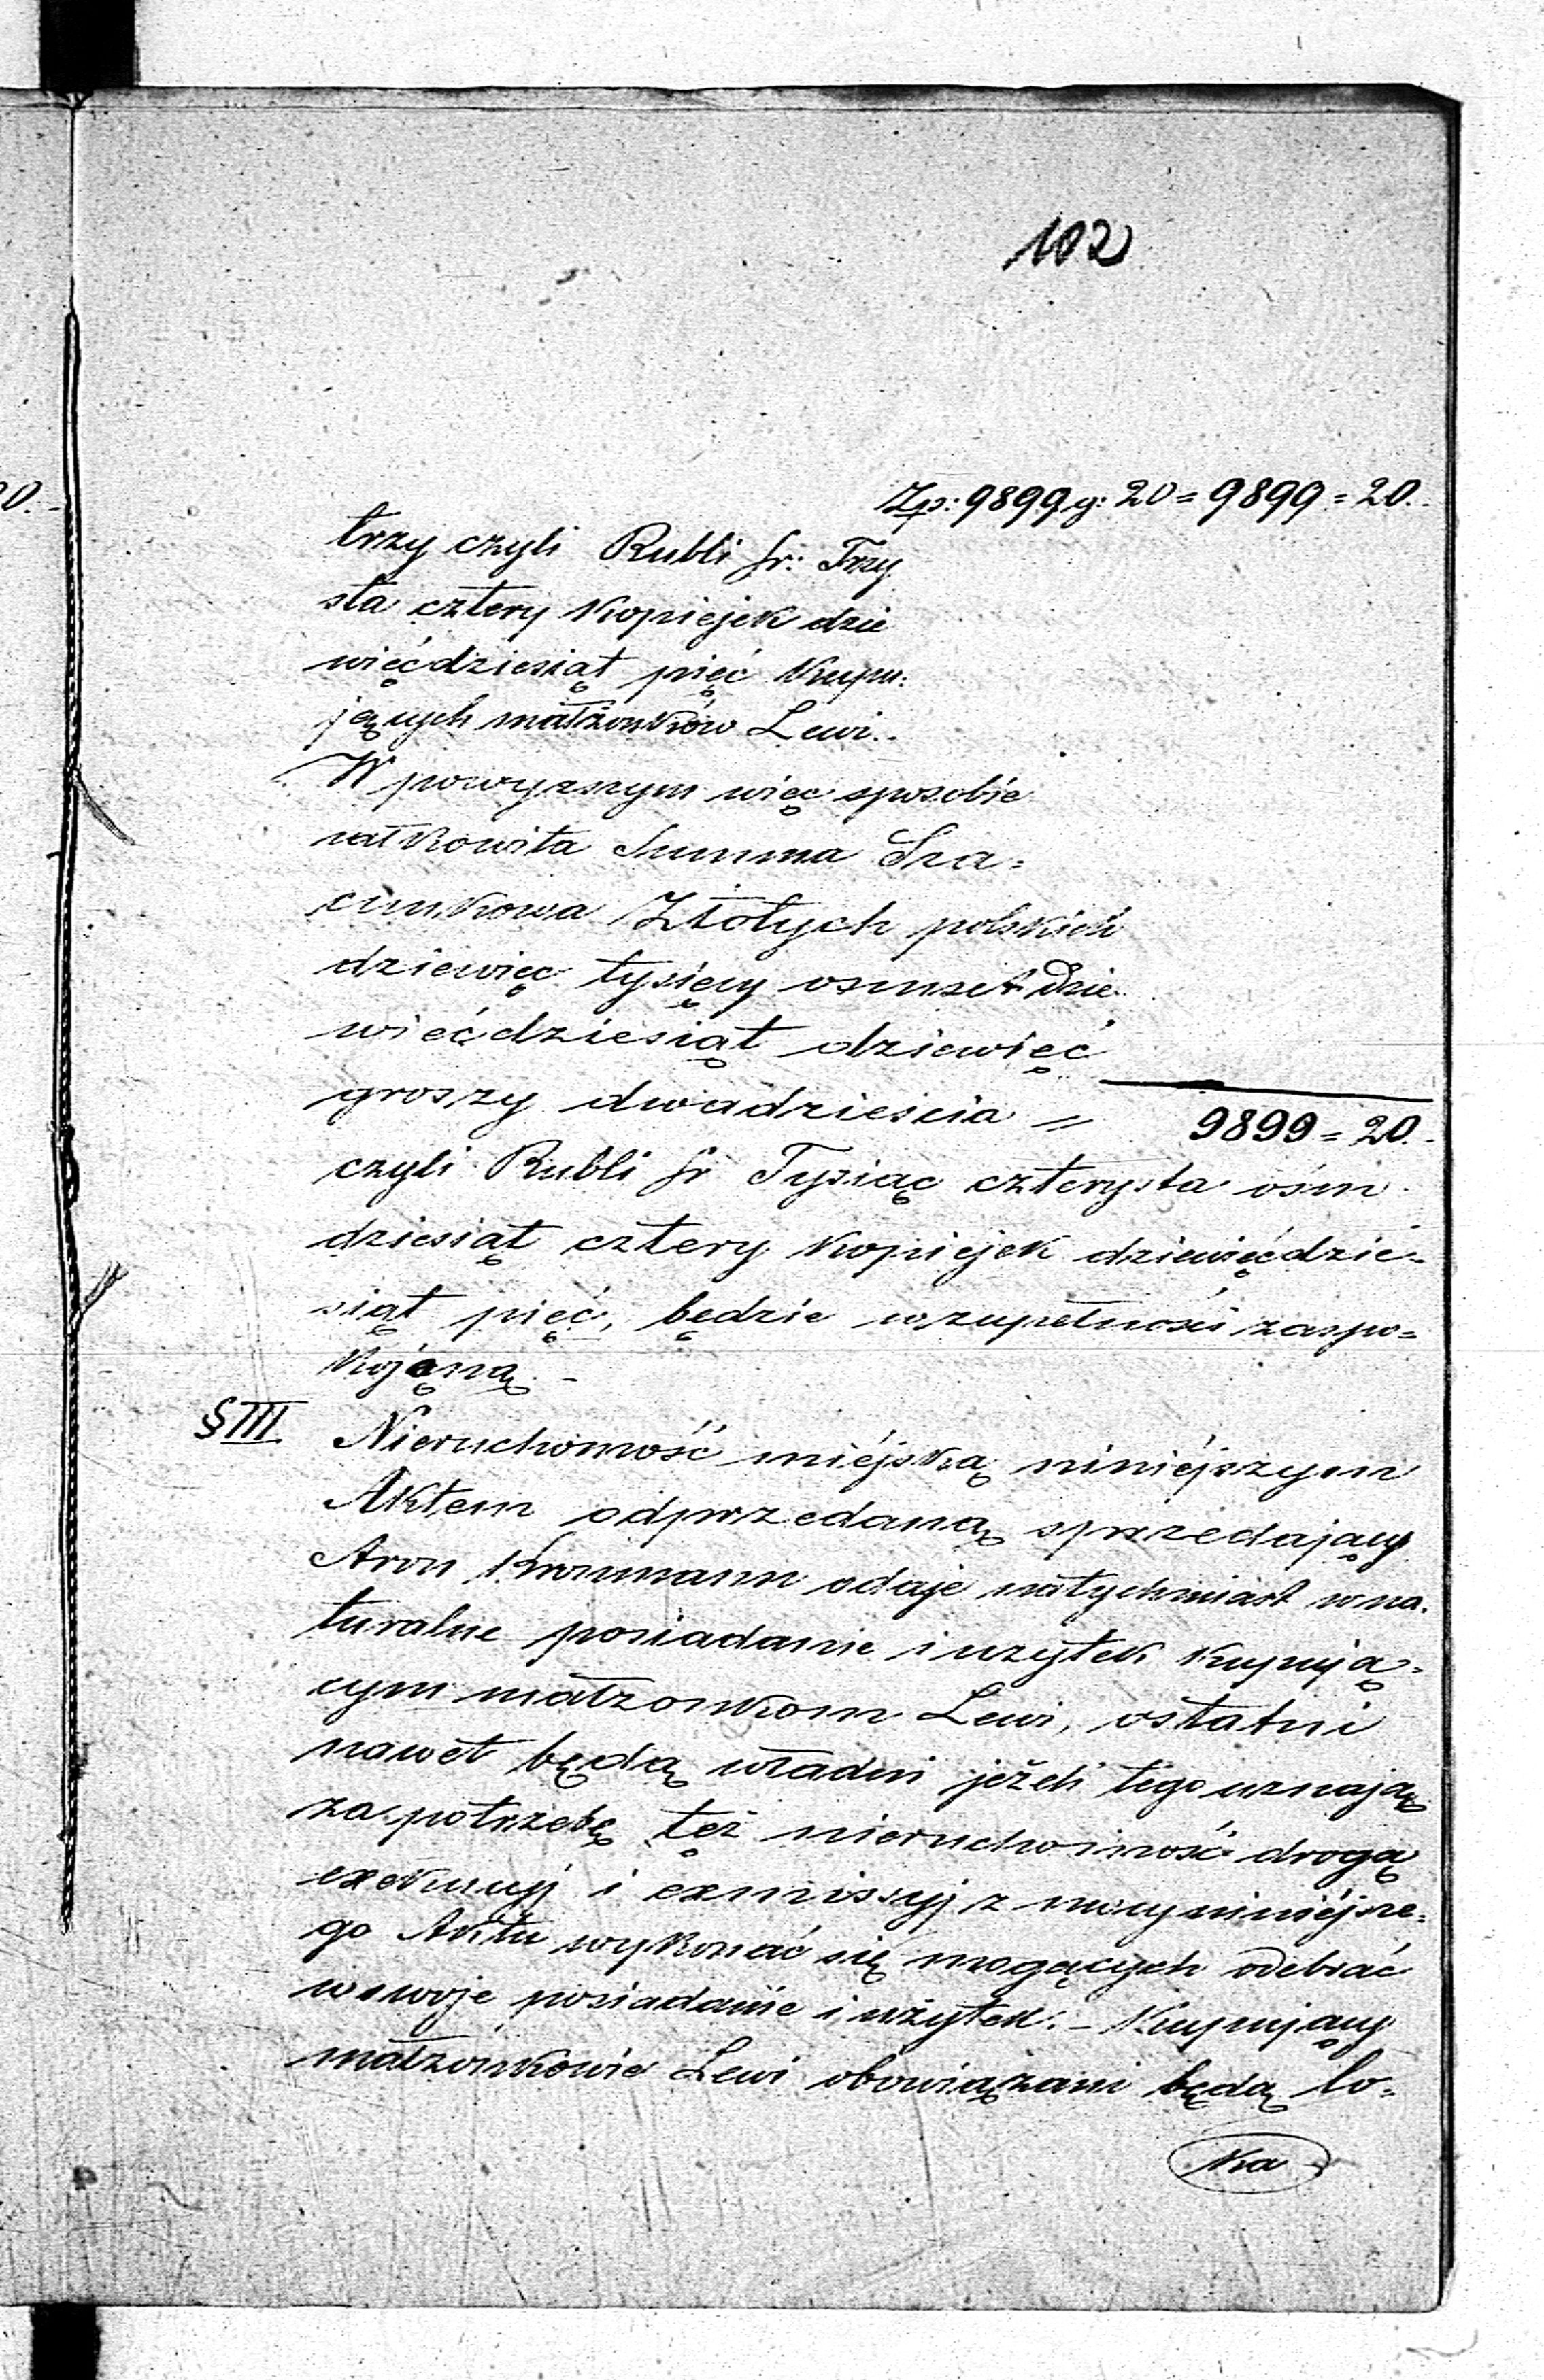 102
0.-
Złp: 9899 g: 20 = 9899 = 20.-
trzy czyli Rubli sr: Trzy
sta cztery Kopiejek dzie
więćdziesiąt pięć Kupu:
jących małżonków Lewi.-
W powyzszym więc sposobie
całkowita Summa Sza=
cunkowa Złotych polskich
dziewięc tysięcy osmset dzie
wiećdziesiąt dziewięć
groszy dwadzieścia = 9899 = 20.-
czyli Rubli sr Tysiąc czterysta ośm
dziesiąt cztery Kopiejek dziewięćdzie=
siąt pięć, będzie wzupełności zaspo=
Kojoną.-
§ III Nieruchomość miéjską niniéjszym
Aktem odprzedaną sprzedający
Aron Kronmann odaje natychmiast w na=
turalne posiadanie i uzytek Kupują=
cym małzonkom Lewi, ostatni
nawet będą władni jeżeli tego uznają
za potrzebę tęż nieruchomość drogą
exekucyj i exmissyj z mocy niniéjsze=
go Aktu wykonać się mogących odebrać
w swoje posiadanie i użytek.- Kupujący
małżonkowie Lewi obowiązani będą lo=
Ka